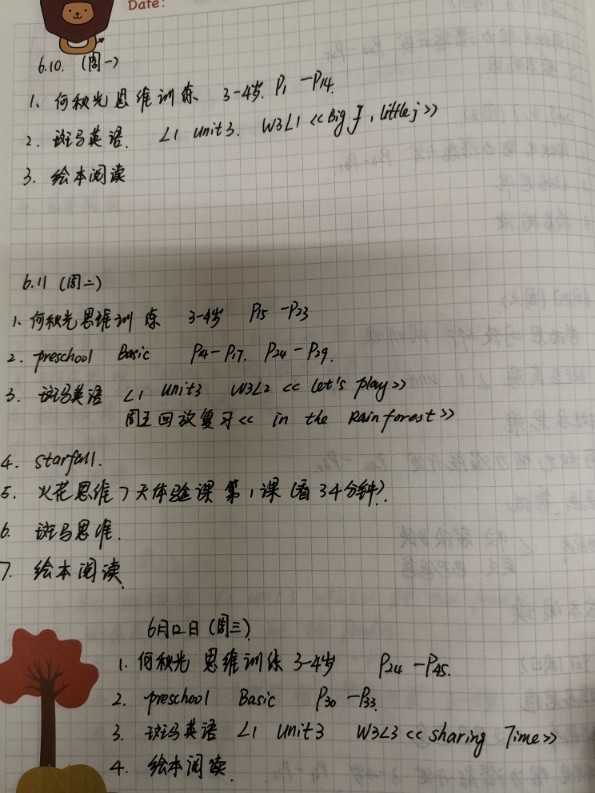 Date:
6.10. (周一)
1. 何秋光思维训练 3-4岁. P1-P14.
2. 斑马英语. L1 Unit3. W3L1 <<Big J, little j>>
3. 绘本阅读
6.11 (周二)
1. 何秋光思维训练 3-4岁 P15-P23
2. preschool Basic P4-P17. P24-P29.
3. 斑马英语 L1 Unit3 W3L2 <<Let's play>>
周五回放复习<<in the Rainforest>>
4. starfall.
5. 火花思维7天体验课 第1课(看34分钟).
6. 斑马思维.
7. 绘本阅读.
6月12日(周三)
1. 何秋光 思维训练 3-4岁 P24-P45.
2. preschool Basic P30-P33.
3. 斑马英语 L1 Unit3 W3L3 <<sharing Time>>
4. 绘本阅读.